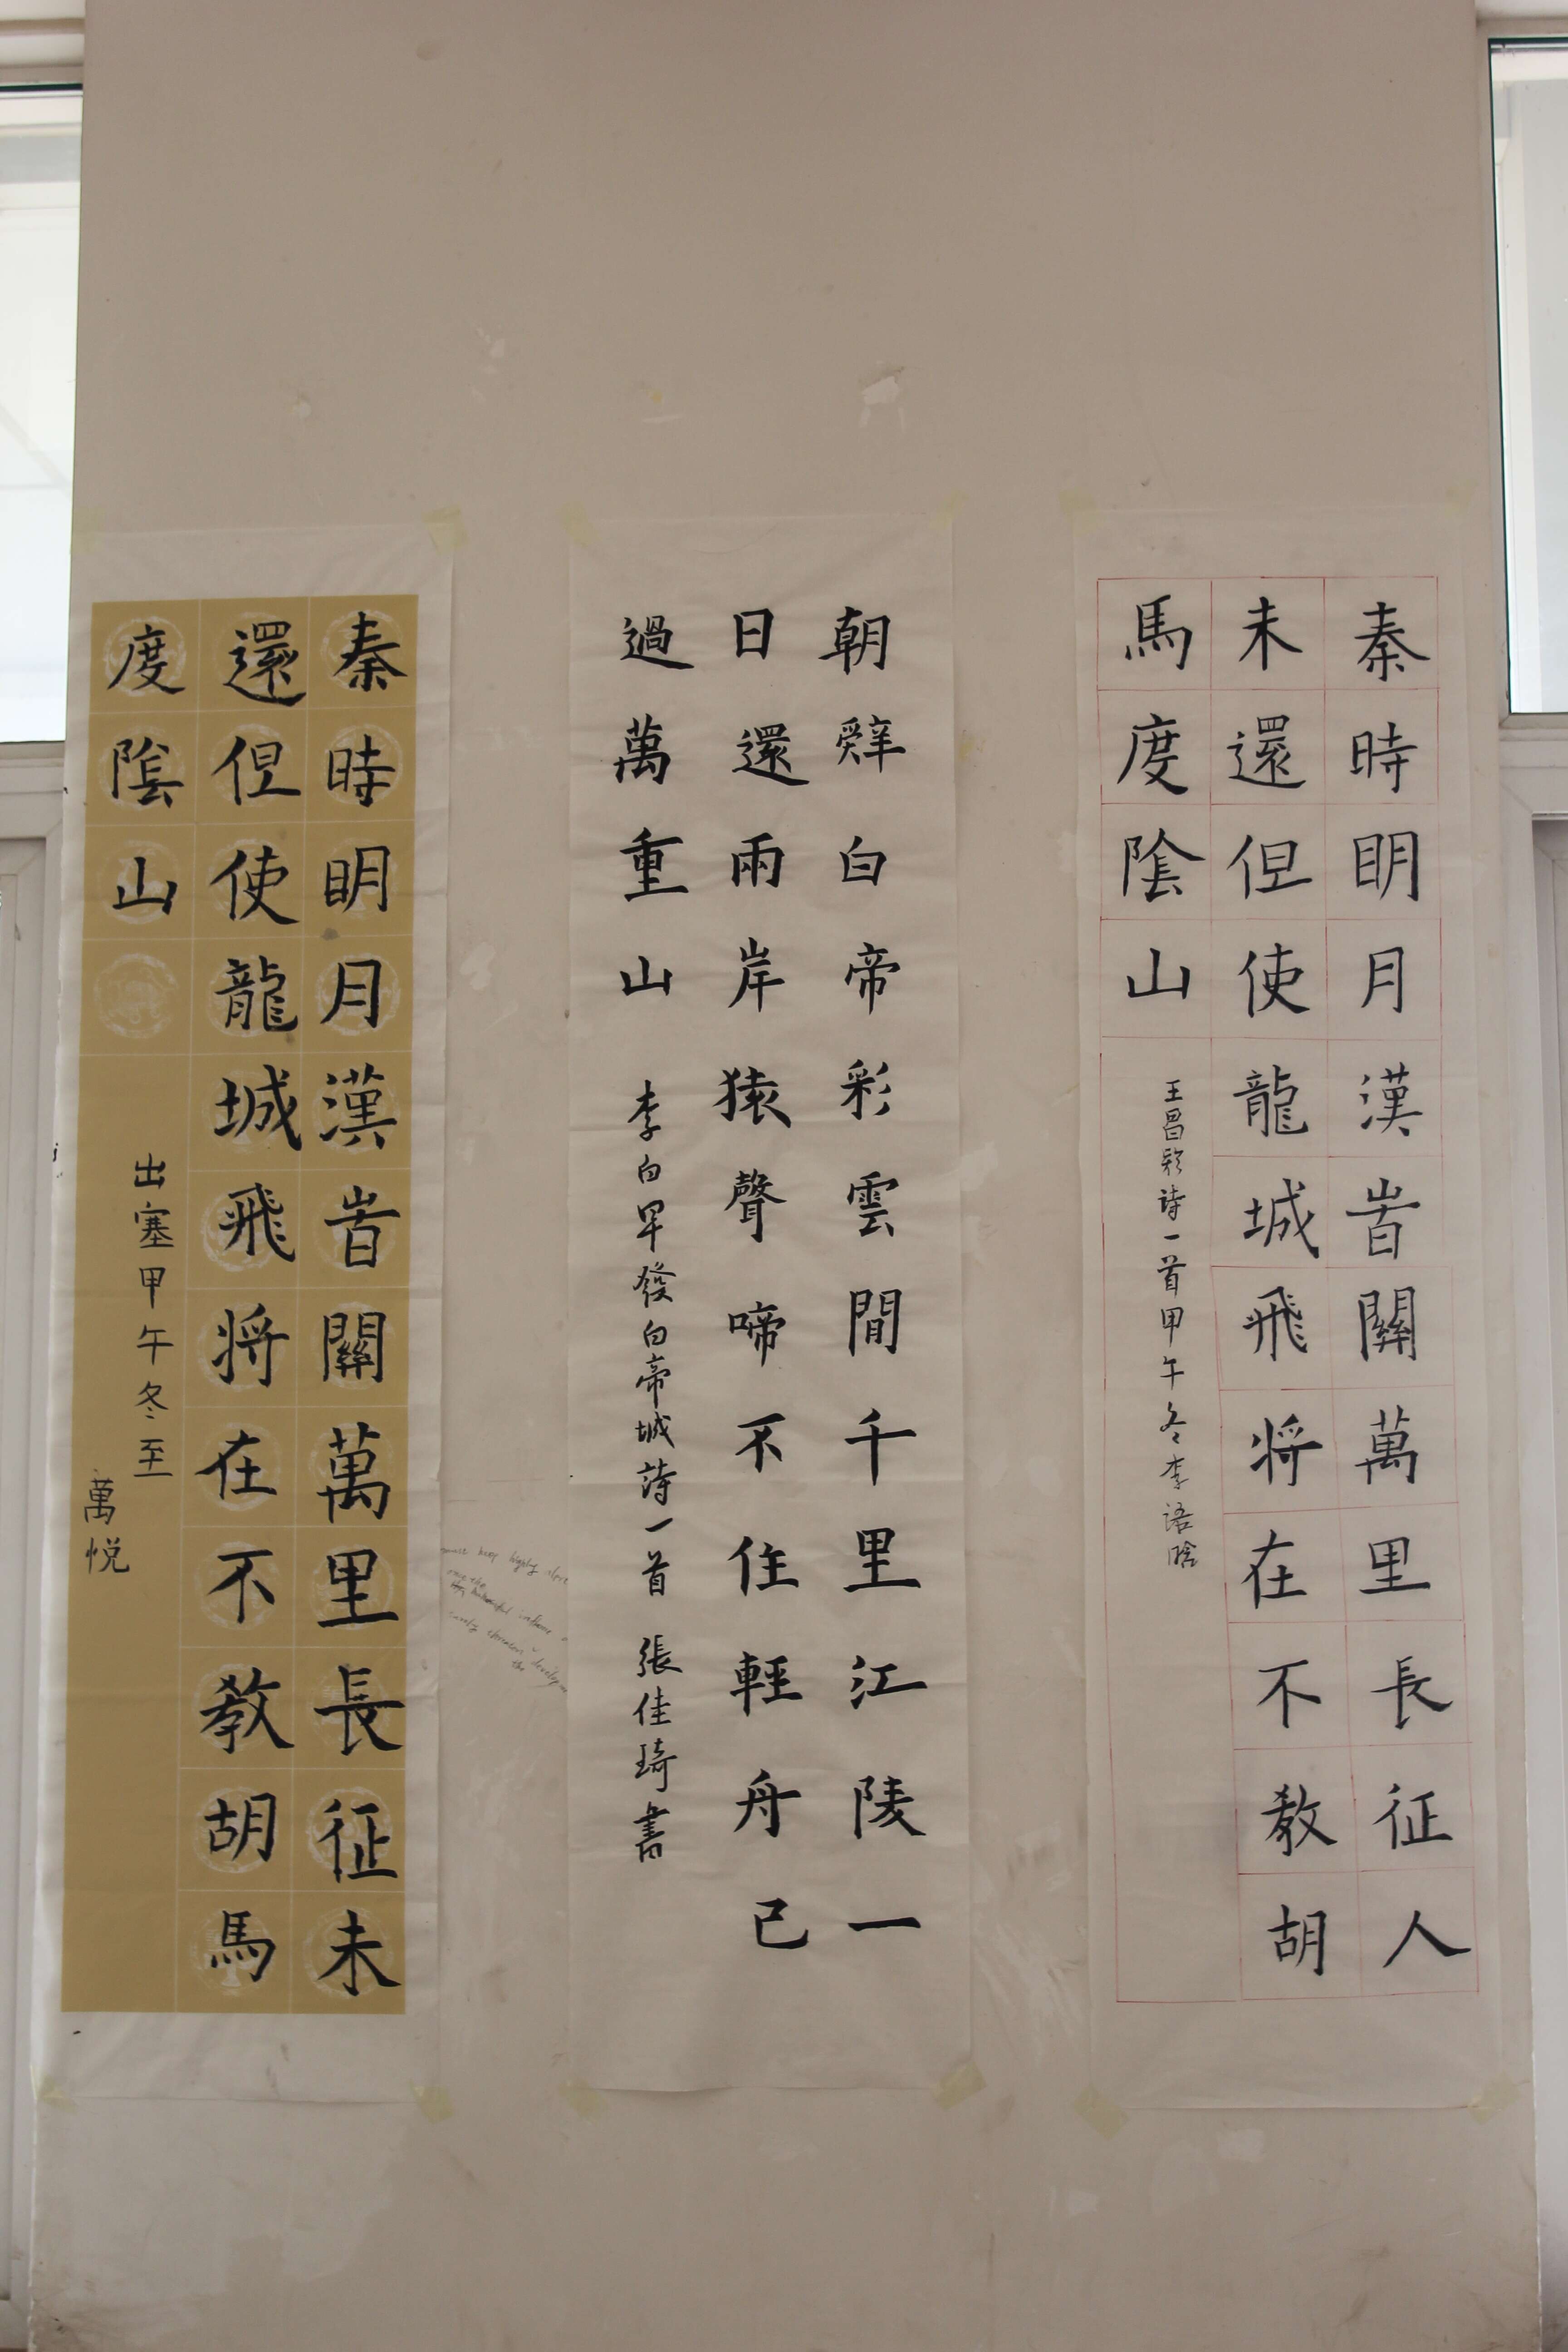 秦時眀月漢旹關萬里長征人
未還但使龍城飛将在不教胡
馬度隂山
王昌龄诗一首甲午冬李语晗
朝辤白帝彩雲間千里江陵一
日還兩岸猿聲啼不住輕舟已
過萬重山
李白早發白帝城詩一首 張佳琦書
秦時眀月漢旹關萬里長征未
還但使龍城飛将在不教胡馬
度隂山
出塞甲午冬至
萬悦